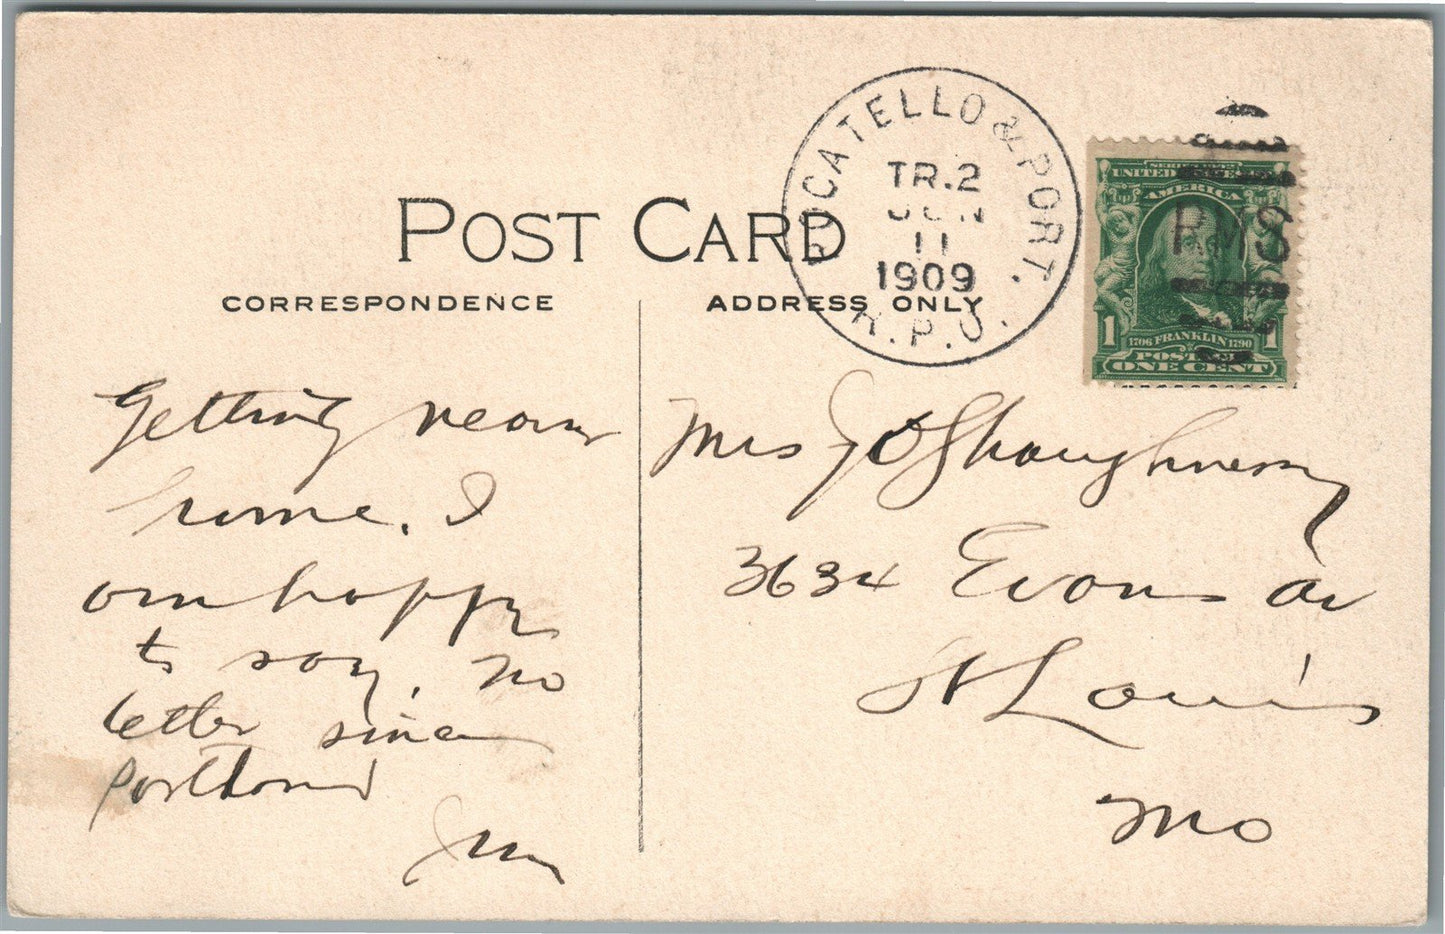 POST CARD
CORRESPONDENCE
ADDRESS ONLY
POCATELLO & PORT.
TR.2
JUN
11
1909
R.P.O.
RMS
SERIES 1902
UNITED STATES OF
AMERICA
1 1706 FRANKLIN 1790 1
POSTAGE
ONE CENT
Getting near
home. I
am happy
to say, no
letter since
Portland
Jim
Mrs J O'Shaughnessy
3634 Evans Av
St Louis
Mo